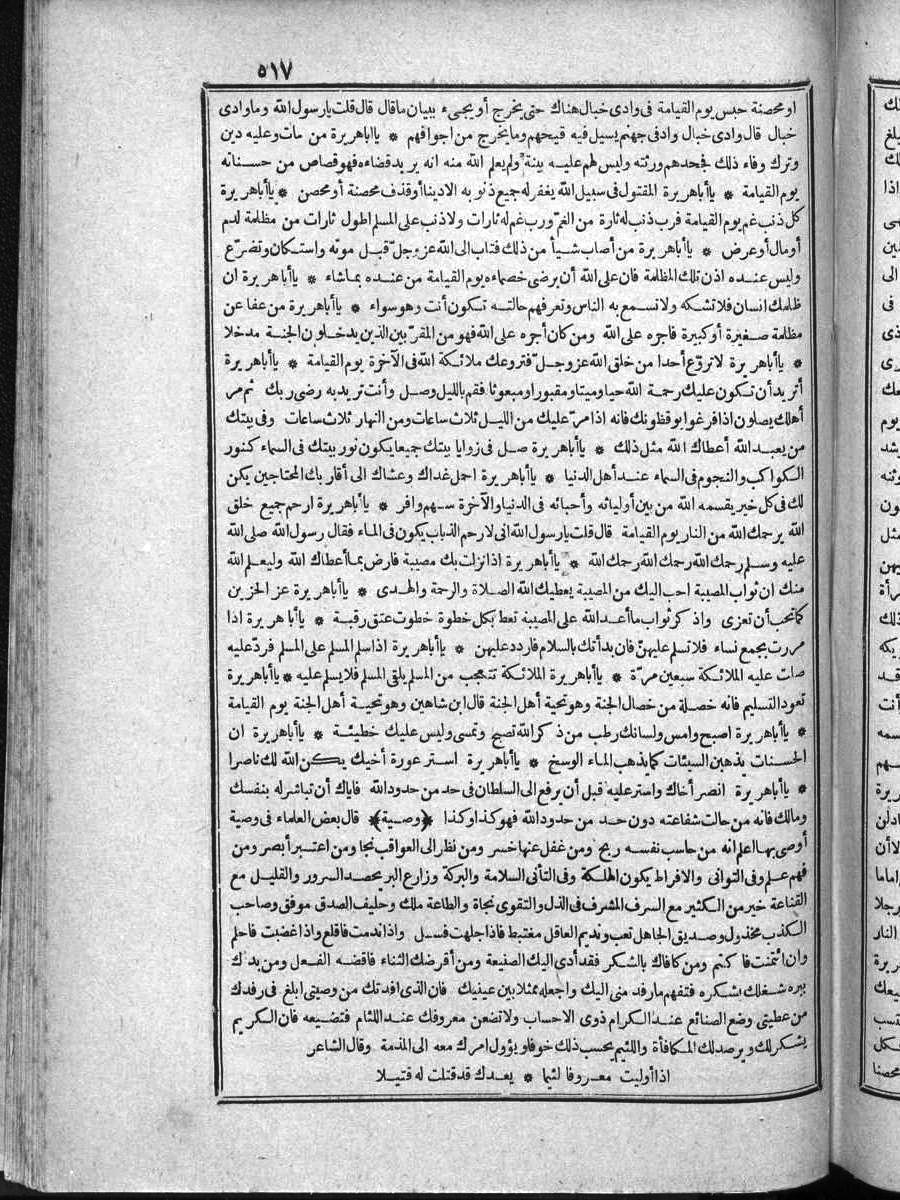 ٥١٧
او محصنة حبس يوم القيامة فى وادى خبال هناك حتى يخرج أو يجىء ببيان ما قال قال قلت يارسول الله وما وادى
خبال قال وادى خبال واد فى جهنم يسيل فيه قيحهم وما يخرج من اجوافهم * يا أباهريرة من مات وعليه دين
وترك وفاء ذلك فجحدهم ورثته وليس لهم عليه بينة ولم يعلم الله منه انه يريد قضاءه فهو قصاص من حسناته
يوم القيامة * يا أباهريرة المقتول فى سبيل الله يغفر له جميع ذنوبه الا دينا أو قذف محصنة أو محصن * يا أباهريرة
كل ذنب غم يوم القيامة فرب ذنب له تارة من الغم ورب غم له تارات ولا ذنب على المسلم اطول تارات من مظلمة لدم
أو مال أو عرض * يا أباهريرة من أصاب شيأ من ذلك فتاب الى الله عز وجل قبل موته واستكان وتضرع
وليس عنده اذن تلك المظلمة فان على الله أن يرضى خصماءه يوم القيامة من عنده بما شاء * يا أباهريرة ان
ظلمك انسان فلا تشكه ولا تسمع به الناس وتعرفهم حالته تكون أنت وهو سواء * يا أباهريرة من عفا عن
مظلمة صغيرة أو كبيرة فاجره على الله ومن كان أجره على الله فهو من المقربين الذين يدخلون الجنة مدخلا
* يا أباهريرة لا تروع أحدا من خلق الله عز وجل فتروعك ملائكة الله فى الآخرة يوم القيامة * يا أباهريرة
أتريد أن تكون عليك رحمة الله حيا وميتا ومقبورا ومبعوثا فقم بالليل وصل وأنت تريد به رضى ربك ثم مر
أهلك يصلون اذا فرغوا يوقظونك فانه اذا مر عليك من الليل ثلاث ساعات ومن النهار ثلاث ساعات وفى بيتك
من يعبد الله أعطاك الله مثل ذلك * يا أباهريرة صل فى زوايا بيتك جميعا يكون نور بيتك فى السماء كنور
الكواكب والنجوم فى السماء عند أهل الدنيا * يا أباهريرة احمل غداك وعشاك الى أقاربك المحتاجين يكن
لك فى كل خير يقسمه الله من بين أوليائه وأحبائه فى الدنيا والآخرة سهم وافر * يا أباهريرة ارحم جميع خلق
الله يرحمك الله من النار يوم القيامة قال قلت يارسول الله انى لارحم الذباب يكون فى الماء فقال رسول الله صلى الله
عليه وسلم رحمك الله رحمك الله رحمك الله * يا أباهريرة اذا نزلت بك مصيبة فارض بما أعطاك الله وليعلم الله
منك ان ثواب المصيبة احب اليك من المصيبة يعطيك الله الصلاة والرحمة والهدى * يا أباهريرة عز الحزين
كما تحب أن تعزى واذكر ثواب ما أعد الله على المصيبة تعط بكل خطوة خطوت عتق رقبة * يا أباهريرة اذا
مررت بجمع نساء فلا تسلم عليهن فان بدأتك بالسلام فاردد عليهن * يا أباهريرة اذا سلم المسلم على المسلم فرد عليه
صلت عليه الملائكة سبعين مرة * يا أباهريرة الملائكة تتعجب من المسلم يلقى المسلم فلا يسلم عليه * يا أباهريرة
تعود التسليم فانه خصلة من خصال الجنة وهو تحية أهل الجنة قال ابن شاهين وهو تحية أهل الجنة يوم القيامة
* يا أباهريرة اصبح وامس ولسانك رطب من ذكر الله تصبح وتمسى وليس عليك خطيئة * يا أباهريرة ان
الحسنات يذهبن السيئات كما يذهب الماء الوسخ * يا أباهريرة استر عورة أخيك يكن الله لك ناصرا
* يا أباهريرة انصر أخاك واستر عليه قبل أن يرفع الى السلطان فى حد من حدود الله فاياك أن تباشر له بنفسك
ومالك فانه من حالت شفاعته دون حد من حدود الله فهو كذا وكذا ﴿وصية﴾ قال بعض العلماء فى وصية
أوصى بها اعلم انه من حاسب نفسه ربح ومن غفل عنها خسر ومن نظر الى العواقب نجا ومن اعتبر أبصر ومن
فهم علم وفى التوانى والافراط يكون الهلكة وفى التأنى السلامة والبركة وزارع البر يحصد السرور والقليل مع
القناعة خير من الكثير مع السرف المشرف فى الذل والتقوى نجاة والطاعة ملك وحليف الصدق موفق وصاحب
الكذب مخذول وصديق الجاهل تعب ونديم العاقل مغتبط فاذا جهلت فسل واذا ندمت فاقلع واذا غضبت فاحلم
وان ائتمنت فاكتم ومن كافاك بالشكر فقد أدى اليك الصنيعة ومن أقرضك الثناء فاقضه الفعل ومن بدأك
ببره شغلك بشكره فتفهم ما رفد منى اليك واجعله ممثلا بين عينيك فان الذى افدتك من وصيتى ابلغ فى رفدك
من عطيتى وضع الصنائع عند الكرام ذوى الاحساب ولا تضعن معروفك عند اللئام فتضيعه فان الكريم
يشكر لك ويرصد لك المكافأة واللئيم يحسب ذلك خوفا ويؤول امرك معه الى المذمة وقال الشاعر
اذا أوليت معروفا لئيما * يعدك قد قتلت له قتيلا